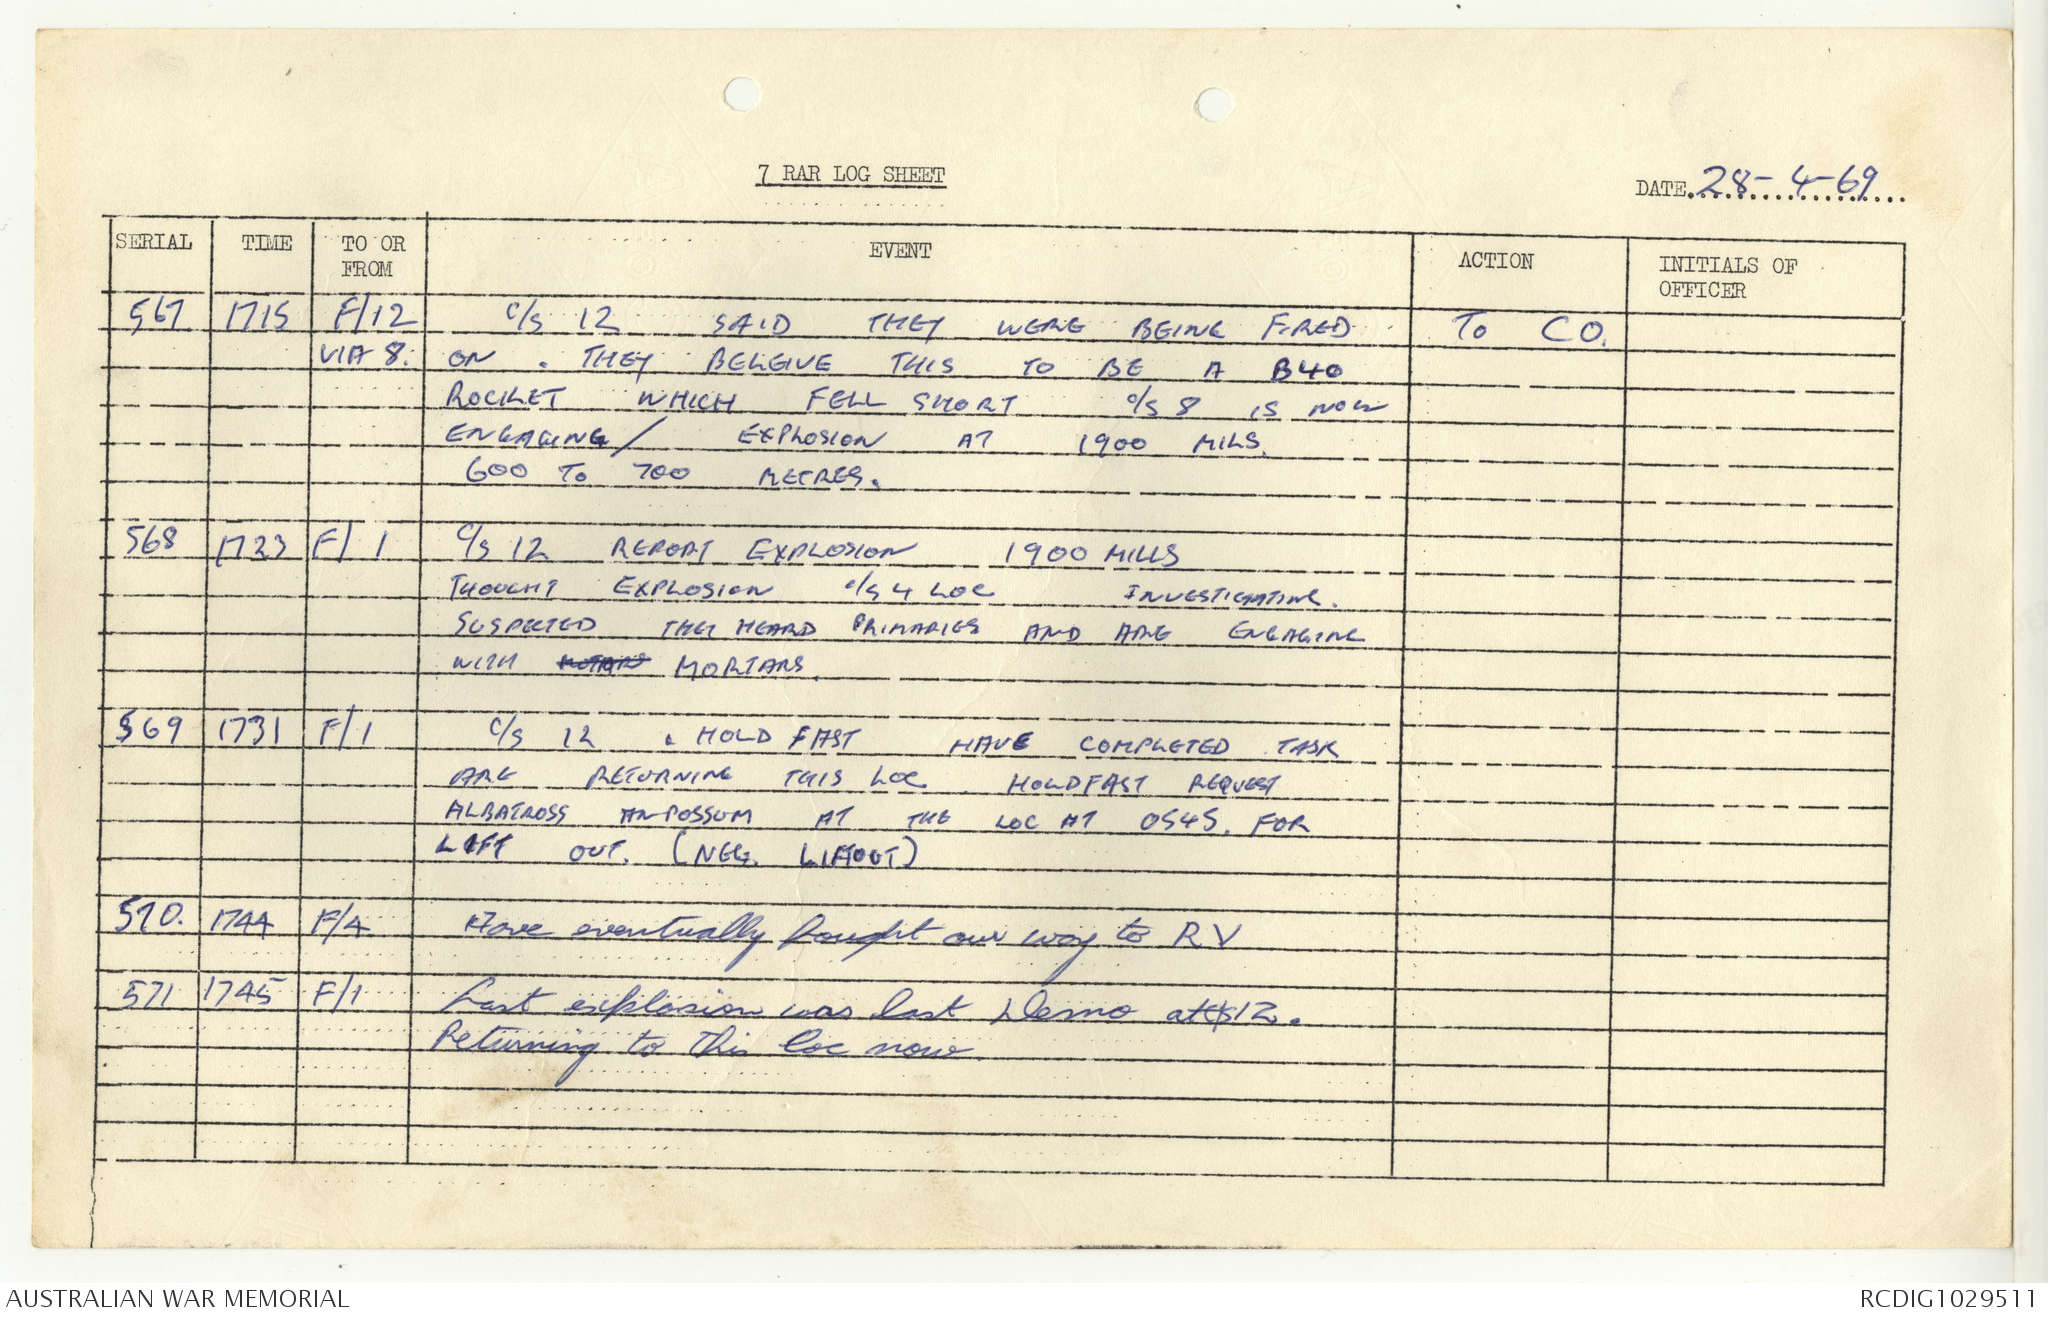 7 RAR LOG SHEET
DATE 28-4-69
SERIAL TIME TO OR FROM EVENT ACTION INITIALS OF OFFICER
567 1715 F/12 C/S 12 SAID THEY WERE BEING FIRED To CO.
VIA 8. ON. THEY BELEIVE THIS TO BE A B40
ROCKET WHICH FELL SHORT C/S 8 IS NOW
ENGAGING/ EXPLOSION AT 1900 MILS.
600 TO 700 METRES.
568 1723 F/1 C/S 12 REPORT EXPLOSION 1900 MILLS
THOUGHT EXPLOSION C/S 4 LOC INVESTIGATING.
SUSPECTED THEY HEARD PRIMARIES AND ARE ENGAGING
WITH MORTARS.
569 1731 F/1 C/S 12. HOLD FAST HAVE COMPLETED TASK
ARE RETURNING THIS LOC HOLDFAST REQUEST
ALBATROSS AN-POSSUM AT THE LOC AT 0545. FOR
LIFT OUT. (NEG. LIFTOUT)
570. 1744 F/4 Have eventually fought our way to RV
571 1745 F/1 Last explosion was last Demo at c/s 12.
Returning to this loc now
AUSTRALIAN WAR MEMORIAL RCDIG1029511